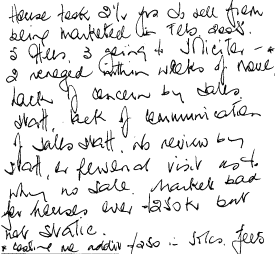 House took 2½ yrs to sell from
being marketed in Feb 2008.
5 offers, 3 going to solicitor - *
2 reneged within weeks of move.
Lack of concern by sales
staff, lack of communication
of sales staff. No review by
staff, or personal visit as to
why no sale. Market bad
for houses over £250K but
not static.
* costing me addit £250 in solcs. fees